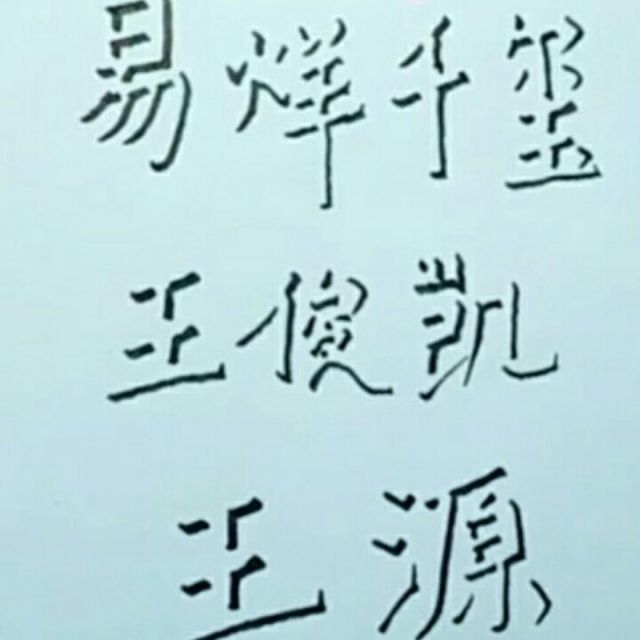 易烊千玺
王俊凯
王源